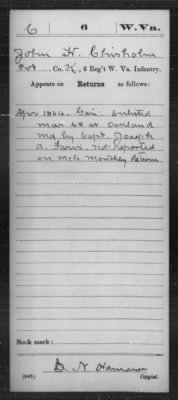 C 6 W. Va.
John H. Chisholm
Pvt., Co. K, 6 Reg't W. Va. Infantry.
Appears on Returns as follows:
Apr 1864. Gain: Enlisted
Mar at Oakland
Md by Capt. Joseph
A. Faris. not reported
on Mch Monthly Return
Book mark:
D. N. Hammer
(646) Copyist.